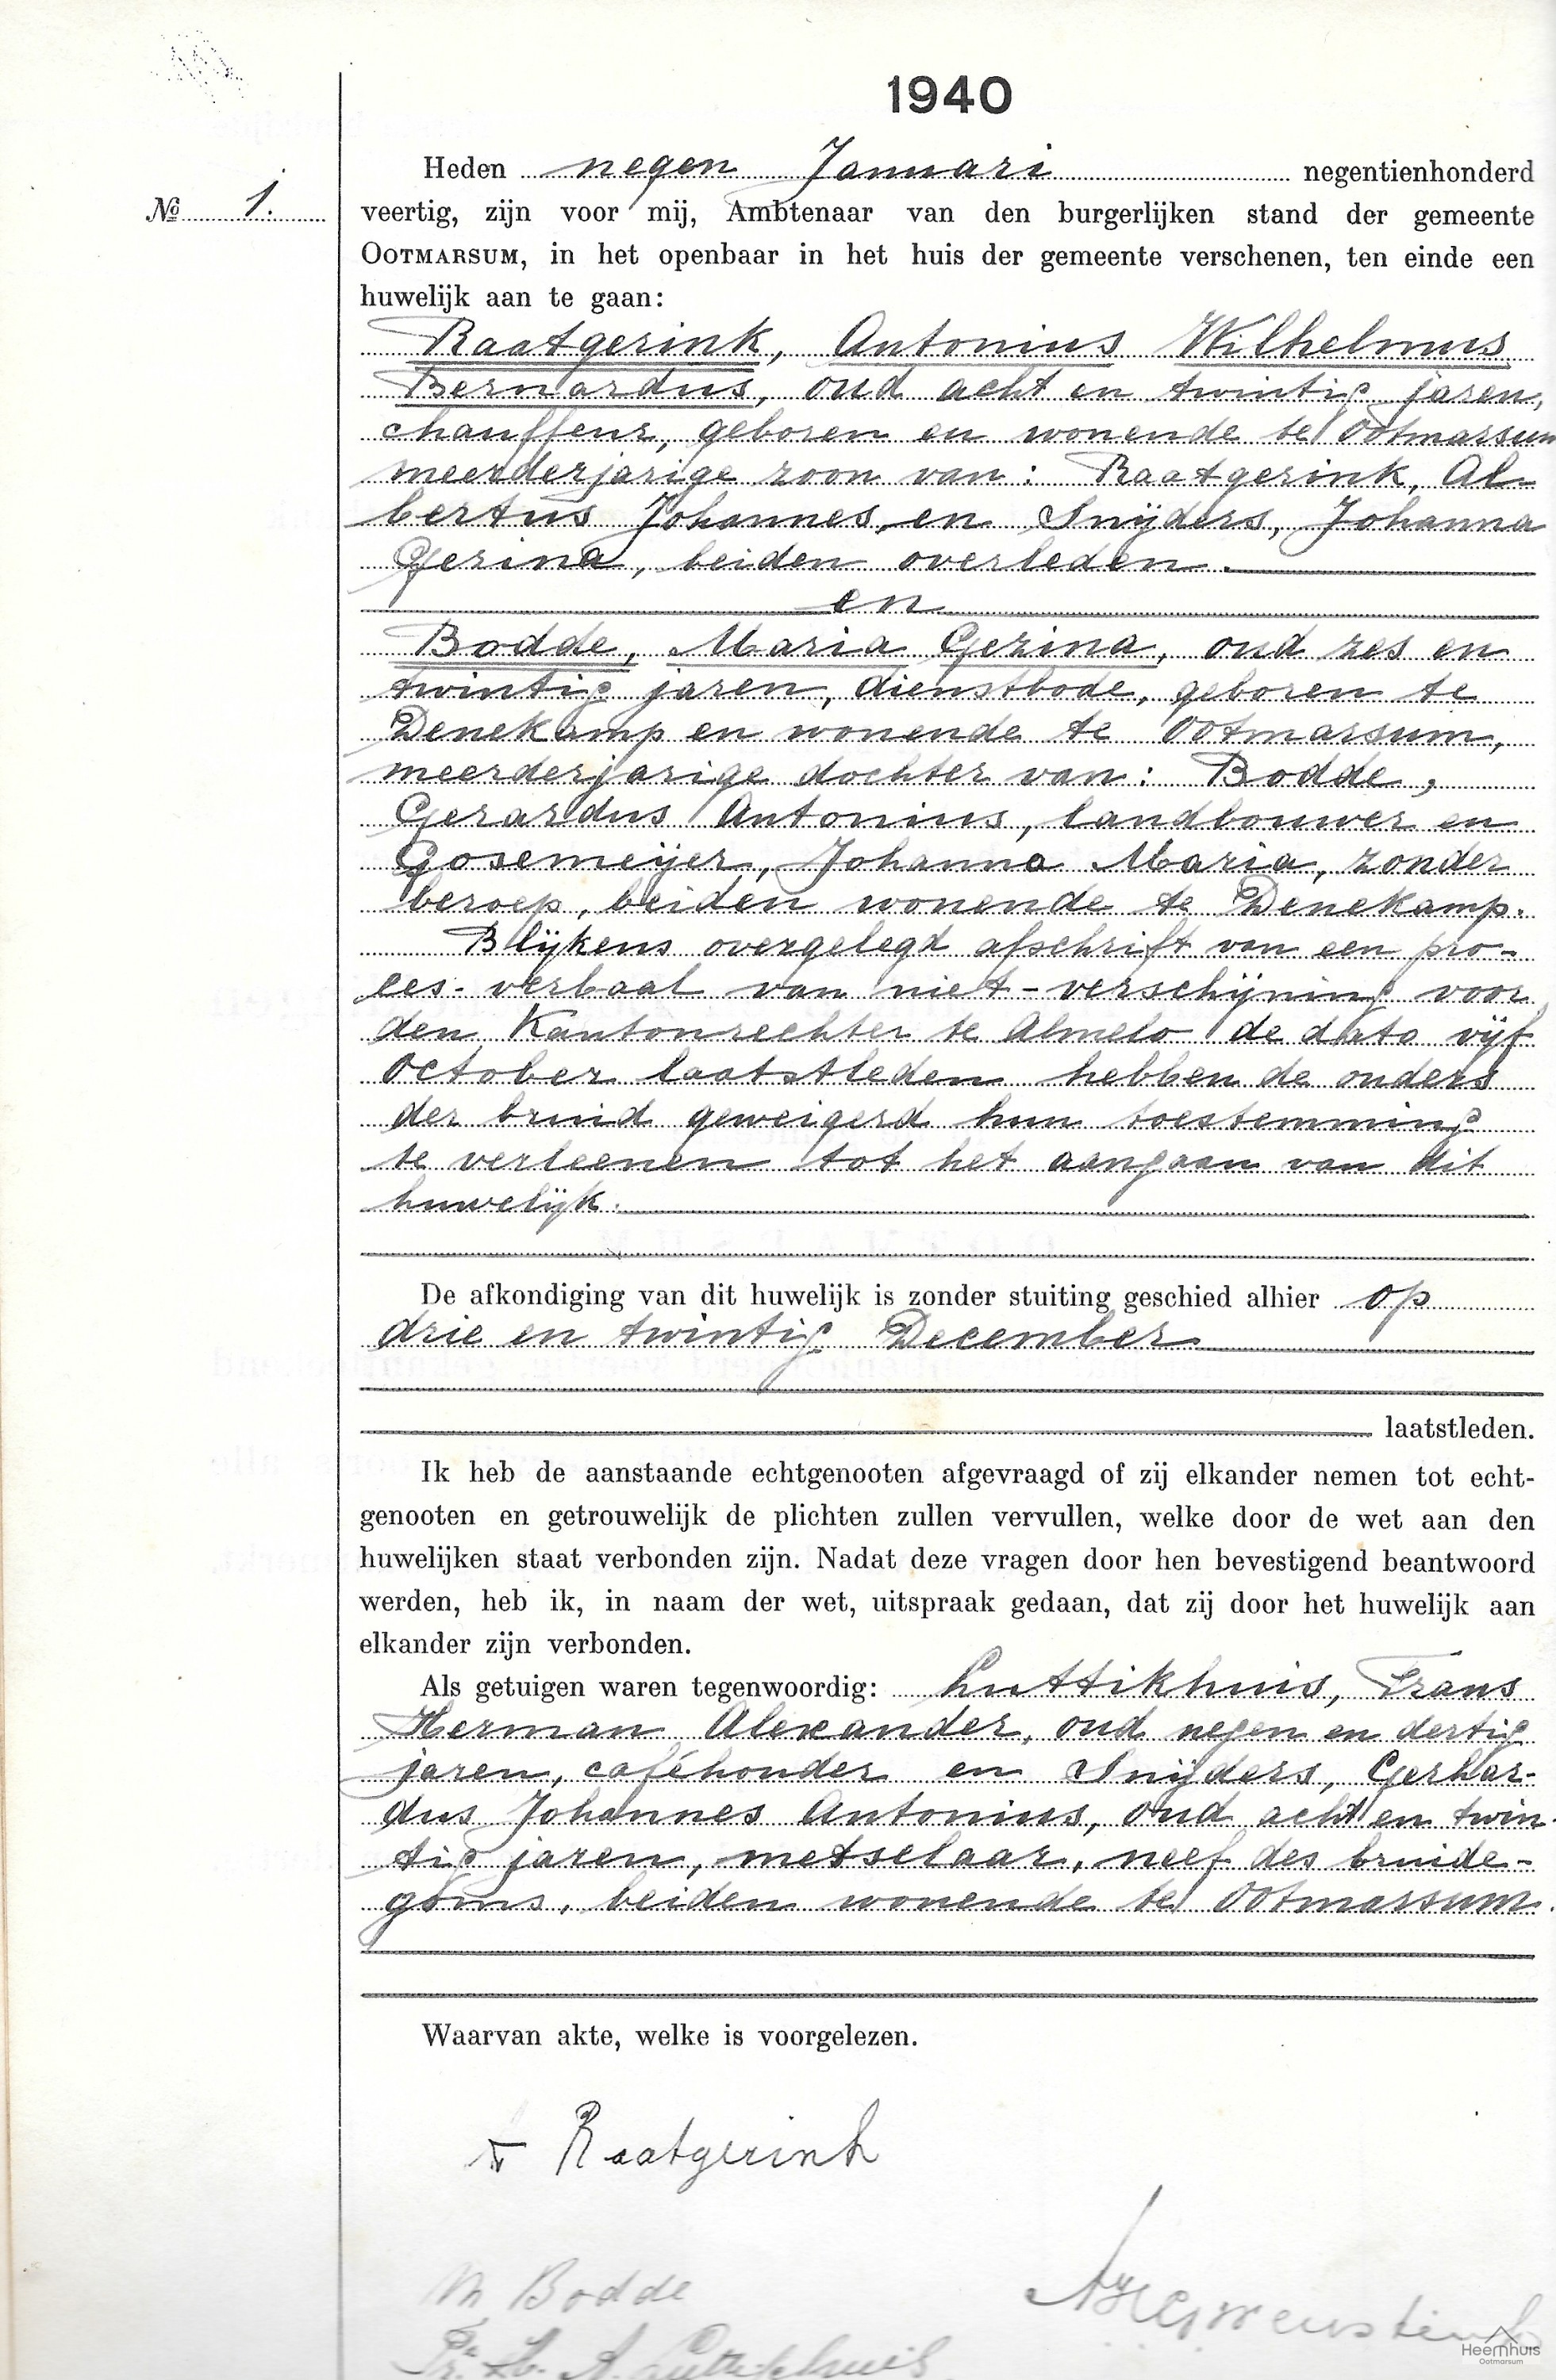 1940
Heden negen Januari negentienhonderd
№ 1.
veertig, zijn voor mij, Ambtenaar van den burgerlijken stand der gemeente
OOTMARSUM, in het openbaar in het huis der gemeente verschenen, ten einde een
huwelijk aan te gaan:
Raatgerink, Antonius Wilhelmus
Bernardus, oud acht en twintig jaren,
chauffeur, geboren en wonende te Ootmarsum
meerderjarige zoon van: Raatgerink, Al-
bertus Johannes, en Snijders, Johanna
Gerina, beiden overleden.
en
Bodde, Maria Gezina, oud zes en
twintig jaren, dienstbode, geboren te
Denekamp en wonende te Ootmarsum,
meerderjarige dochter van: Bodde,
Gerardus Antonius, landbouwer en
Gosemeijer, Johanna Maria, zonder
beroep, beiden wonende te Denekamp.
Blijkens overgelegd afschrift van een pro-
ces-verbaal van niet-verschijning voor
den Kantonrechter te Almelo de dato vijf
October laatstleden hebben de ouders
der bruid geweigerd hun toestemming
te verleenen tot het aangaan van dit
huwelijk.
De afkondiging van dit huwelijk is zonder stuiting geschied alhier op
drie en twintig December
laatstleden.
Ik heb de aanstaande echtgenooten afgevraagd of zij elkander nemen tot echt-
genooten en getrouwelijk de plichten zullen vervullen, welke door de wet aan den
huwelijken staat verbonden zijn. Nadat deze vragen door hen bevestigend beantwoord
werden, heb ik, in naam der wet, uitspraak gedaan, dat zij door het huwelijk aan
elkander zijn verbonden.
Als getuigen waren tegenwoordig: Luttikhuis, Frans
Herman Alexander, oud negen en dertig
jaren, caféhouder en Snijders, Gerhar-
dus Johannes Antonius, oud acht en twin-
tig jaren, metselaar, neef des bruide-
goms, beiden wonende te Ootmarsum.
Waarvan akte, welke is voorgelezen.
Raatgerink
M Bodde
Fr. H. A. Luttikhuis
Heemhuis
Ootmarsum